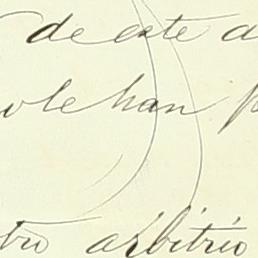 de este a
ole han p
tro arbitrio